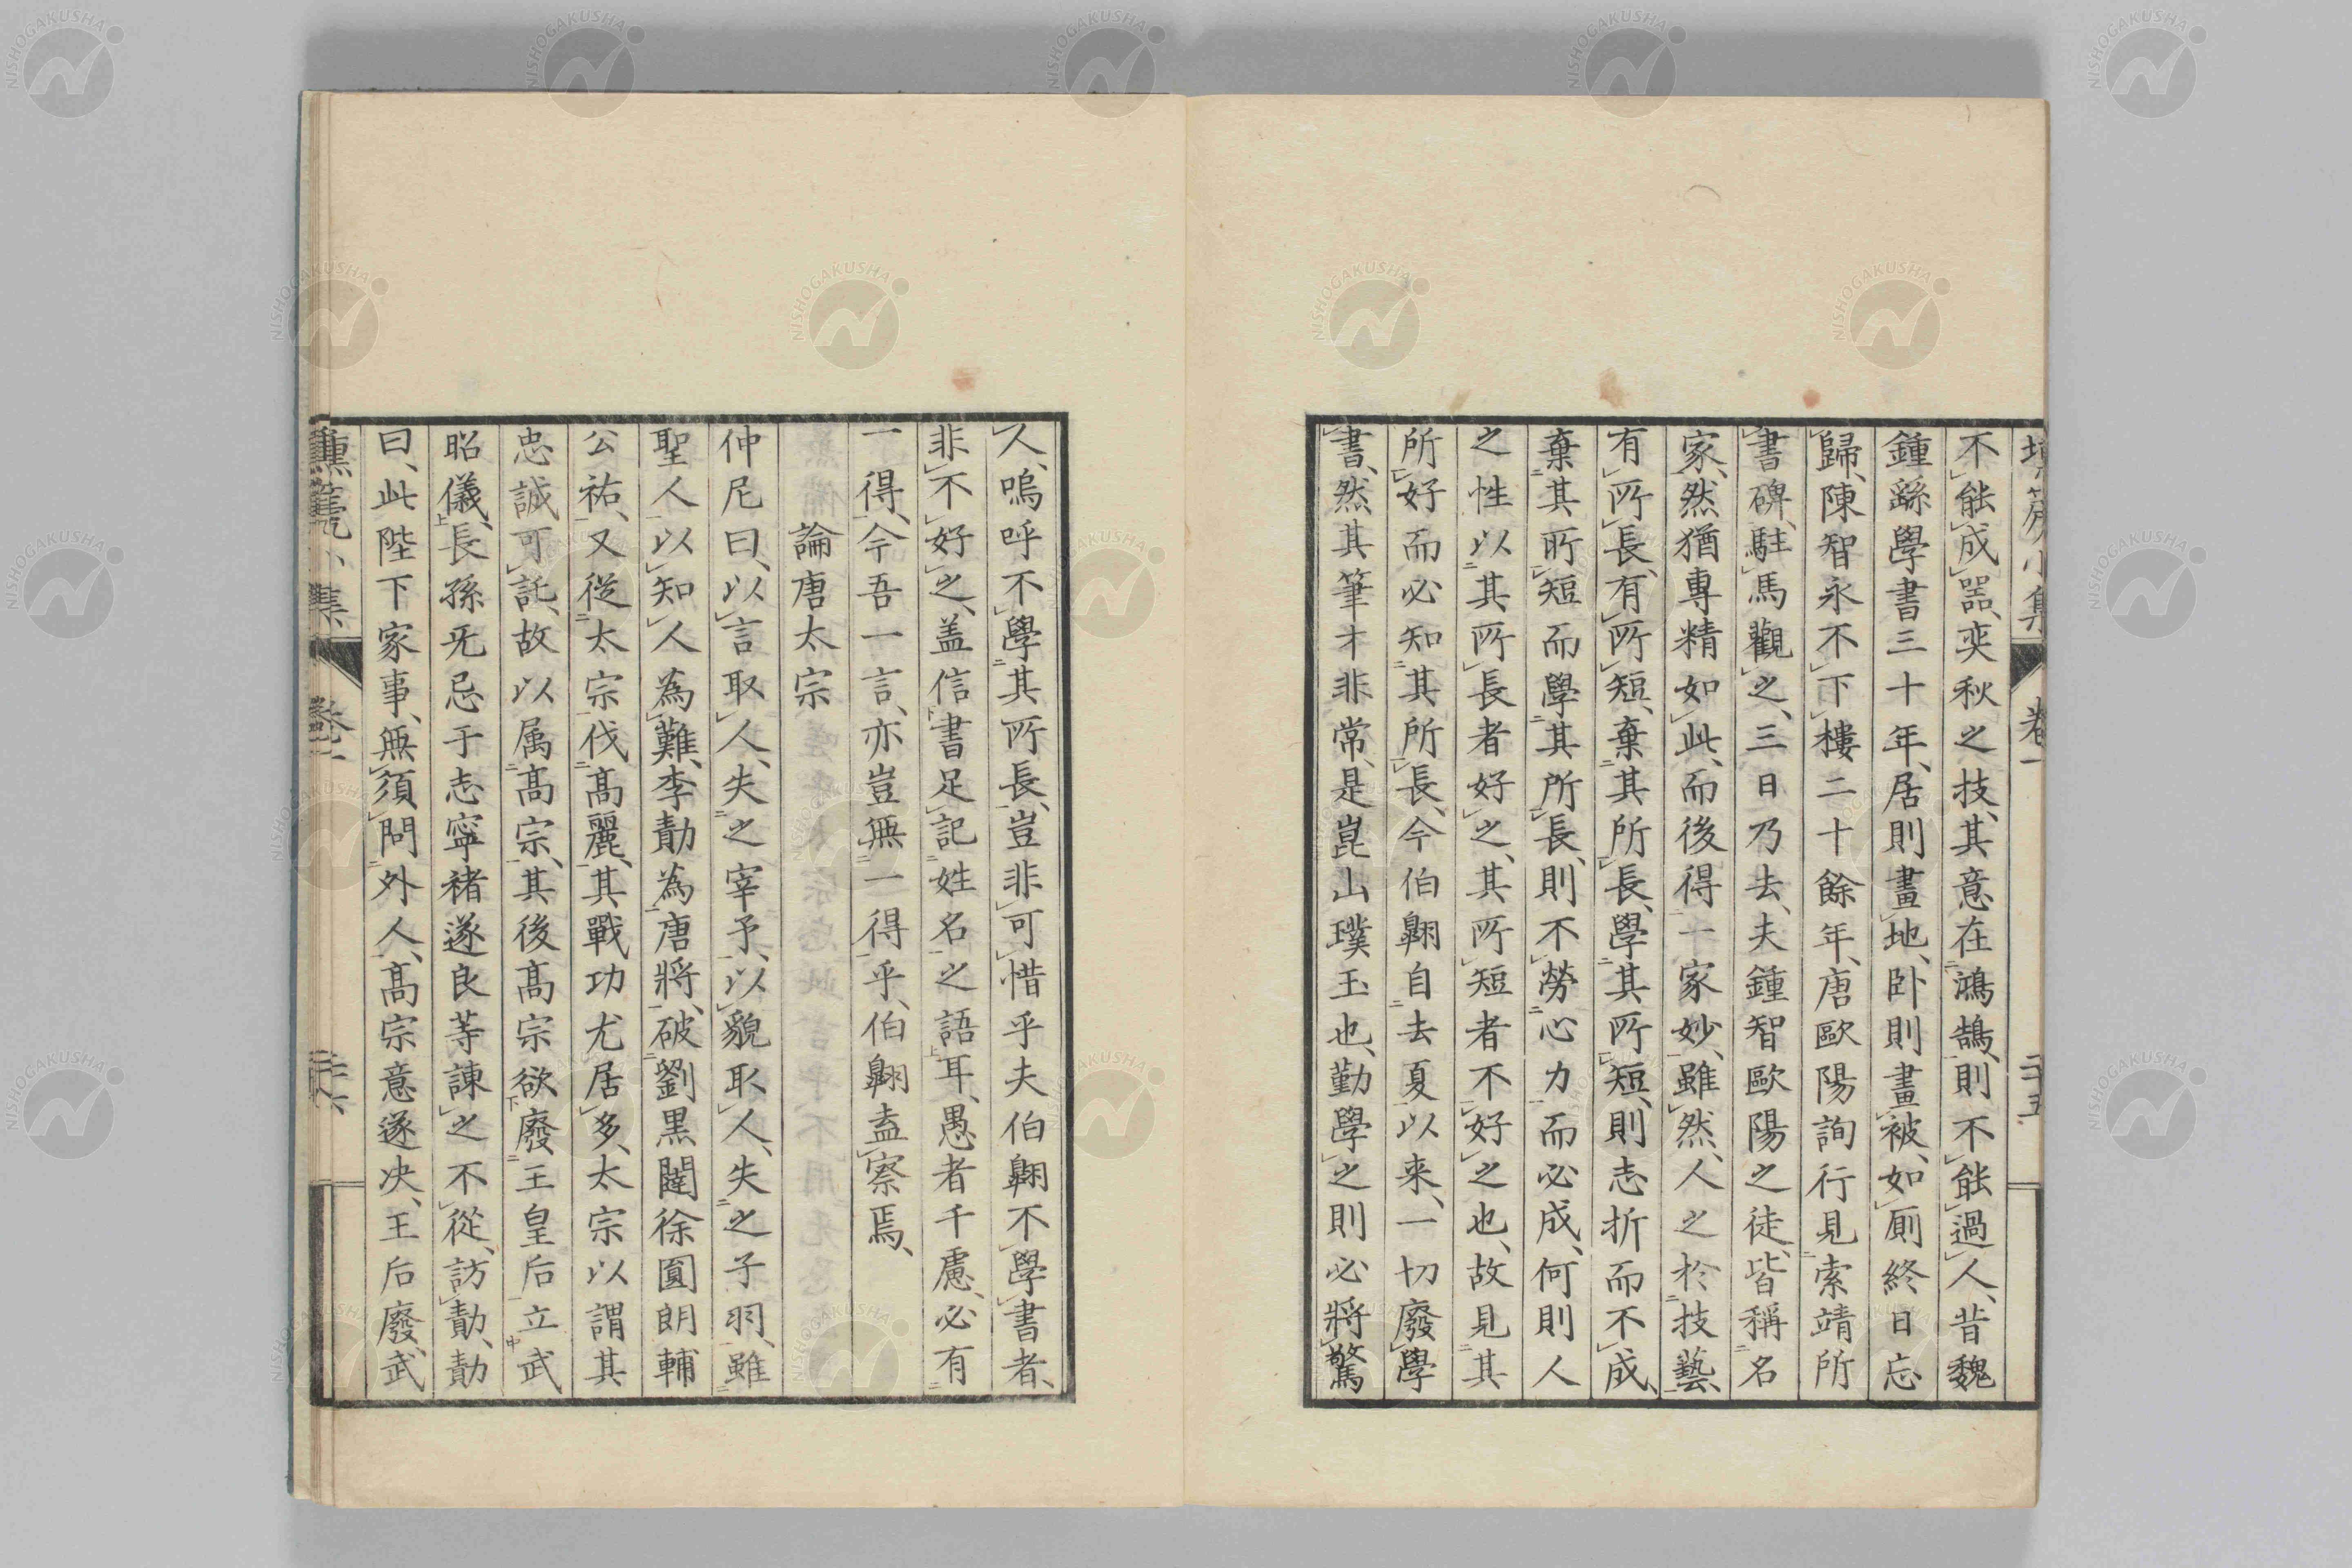 不能成噐、奕秋之技、其意在鴻鵠、則不能過人、昔魏
鍾繇學書三十年、居則畫地、卧則畫被、如厠終日忘
歸、陳智永不下樓二十餘年、唐歐陽詢行見索靖所
書碑、駐馬觀之、三日乃去、夫鍾智歐陽之徒、皆稱名
家、然猶專精如此、而後得一家妙、雖然、人之於技藝、
有所長、有所短、棄其所長、學其所短、則志折而不成、
棄其所短而學其所長、則不勞心力而必成、何則人
之性以其所長者好之、其所短者不好之也、故見其
所好而必知其所長、今伯翺自去夏以来、一切廢學
書、然其筆才非常、是崑山璞玉也、勤學之則必將驚
人、嗚呼不學其所長、豈非可惜乎夫伯翺不學書者、
非不好之、盖信書足記姓名之語耳、愚者千慮、必有
一得、今吾一言、亦豈無一得乎、伯翺盍察焉、
論唐太宗
仲尼曰、以言取人、失之宰予、以貌取人、失之子羽、雖
聖人以知人為難、李勣為唐將、破劉黒闥徐圎朗輔
公祐、又從太宗伐髙麗、其戰功尤居多、太宗以謂其
忠誠可託、故以属髙宗、其後髙宗欲廢王皇后立武
昭儀、長孫旡忌于志寜褚遂良等諌之不從、訪勣、勣
曰、此陛下家事、無須問外人、髙宗意遂决、王后廢、武
卷一
二十五
NISHOGAKUSHA